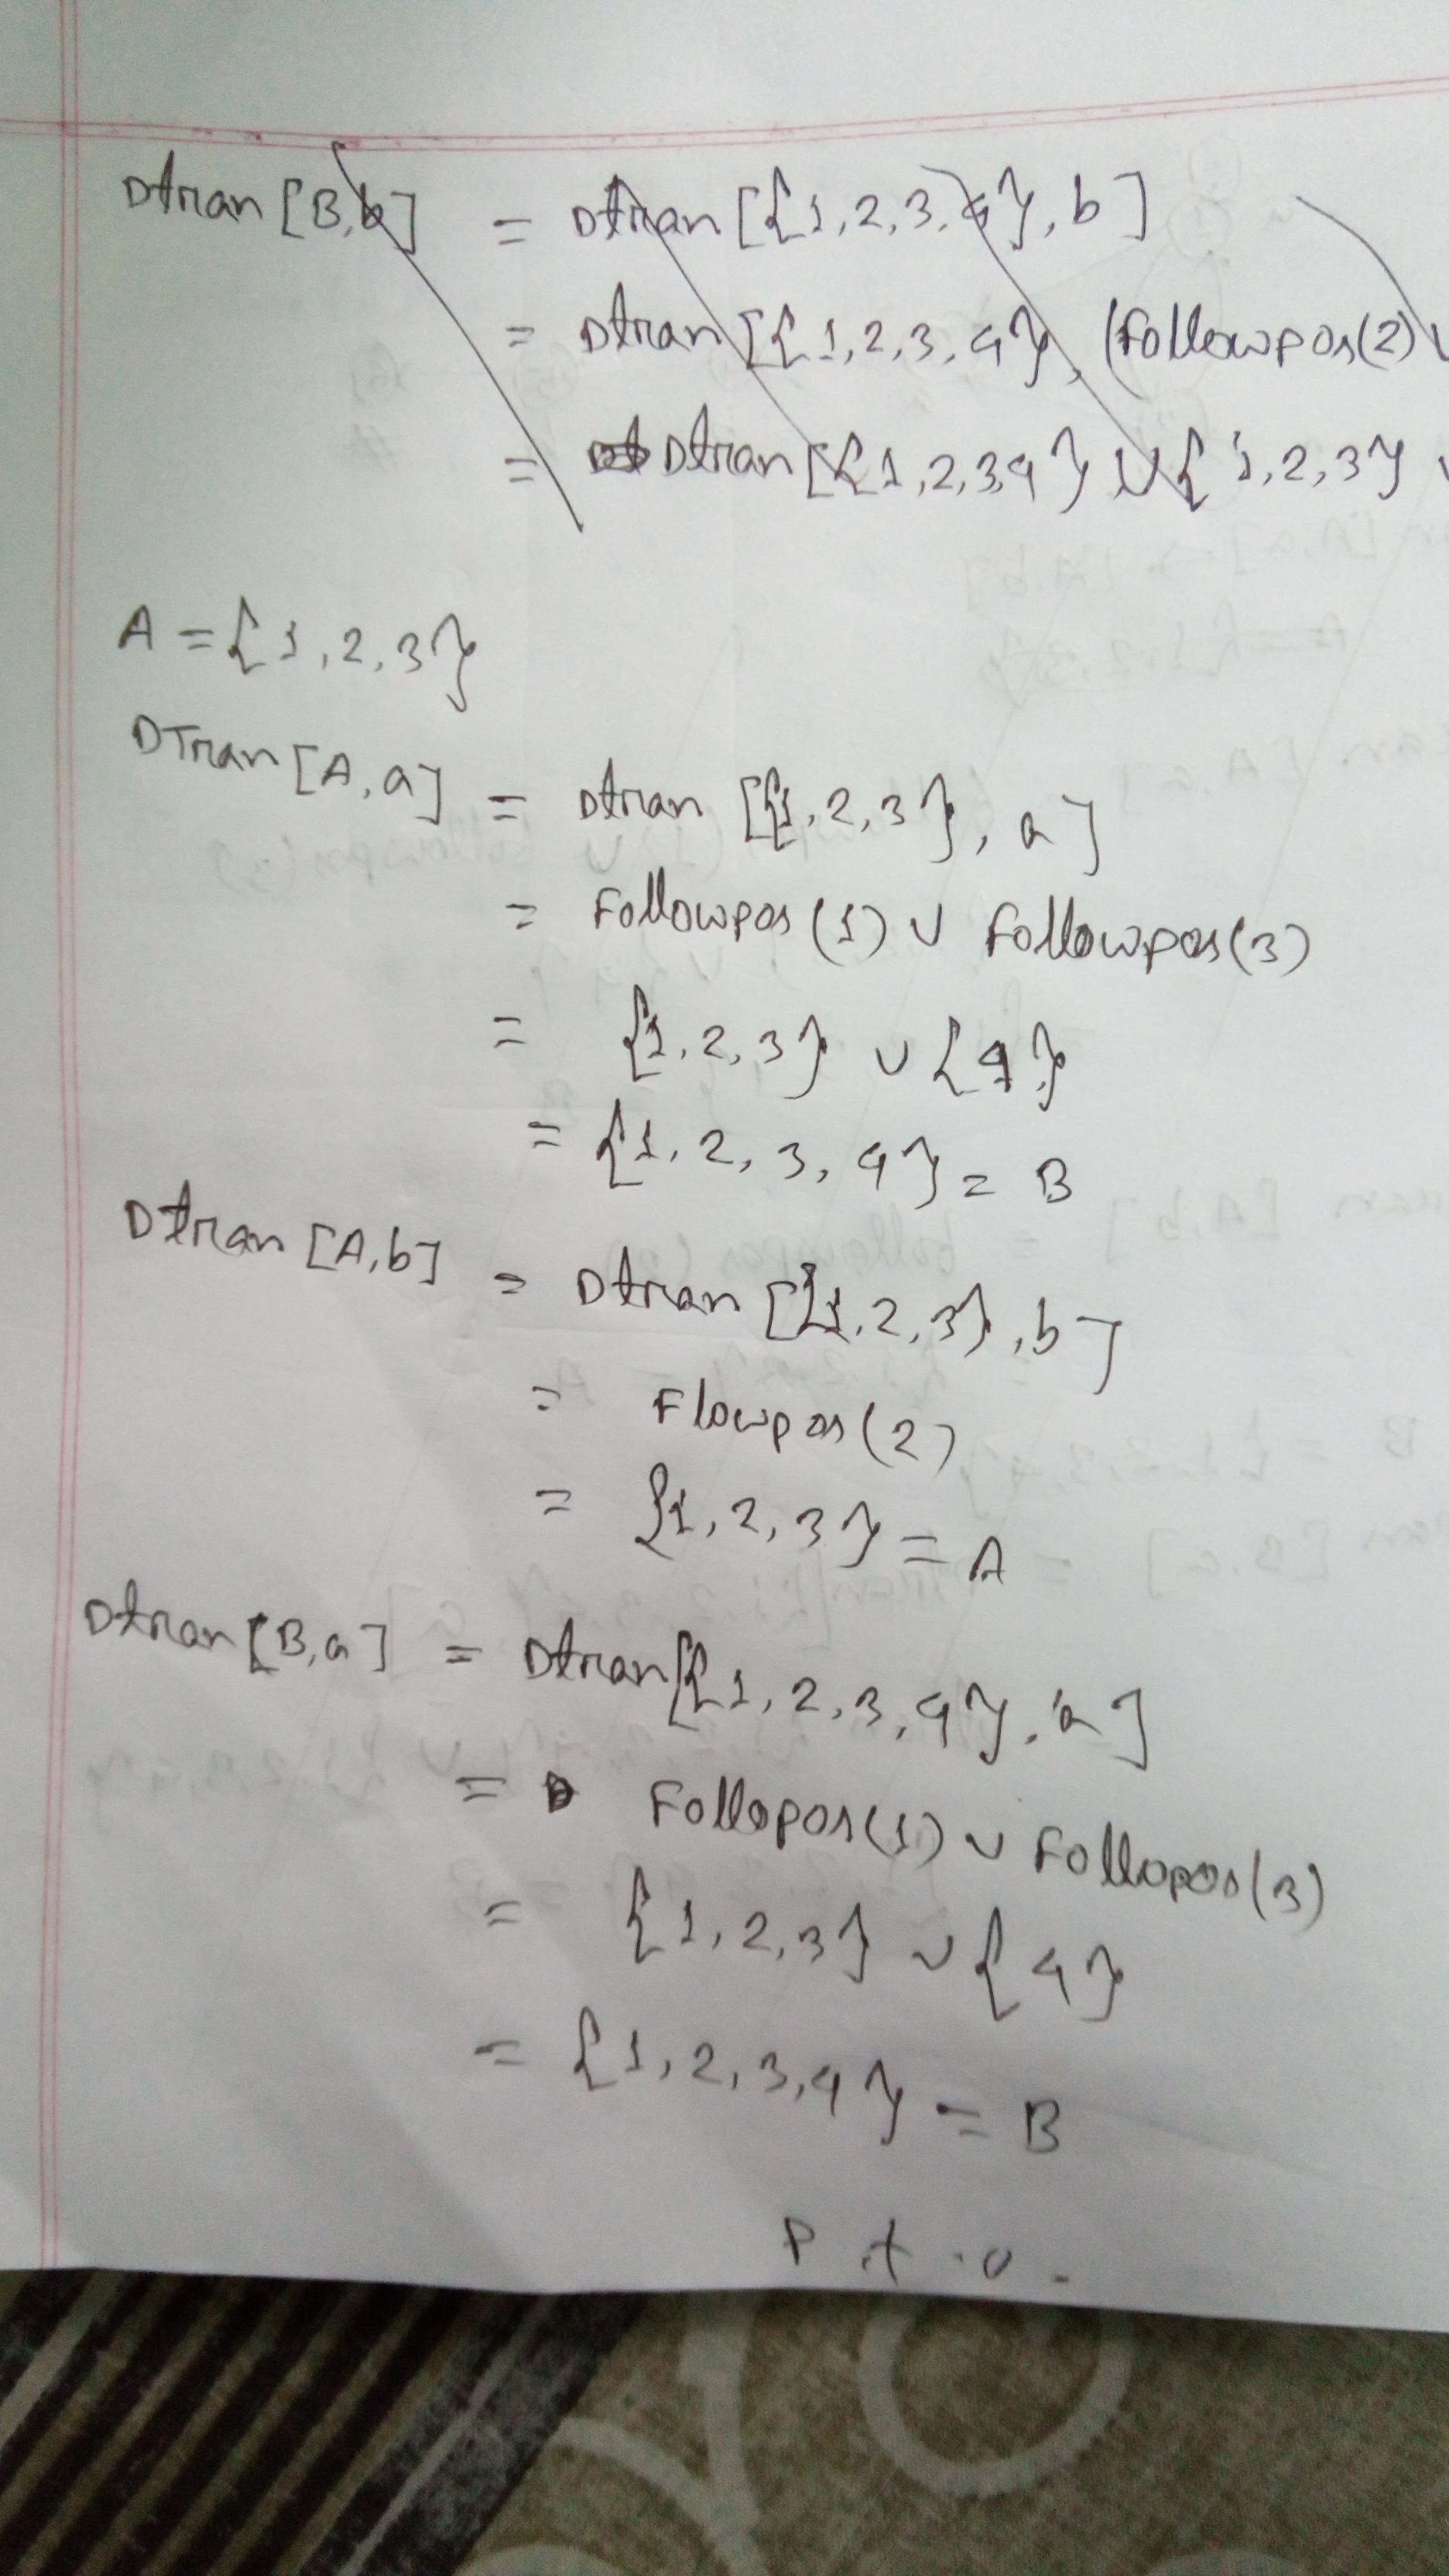 Dtran [B,b] = Dtran [{1,2,3,4}, b]
= Dtran [{1,2,3,4}, (Followpos(2) ∪
= Dtran [{1,2,3,4} ∪ {1,2,3}
A = {1,2,3}
DTran [A,a] = Dtran [{1,2,3}, a]
= Followpos(1) ∪ Followpos(3)
= {1,2,3} ∪ {4}
= {1,2,3,4} = B
Dtran [A,b] = Dtran [{1,2,3}, b]
= Flowpos(2)
= {1,2,3} = A
Dtran [B,a] = Dtran [{1,2,3,4}, a]
= Follopos(1) ∪ Follopos(3)
= {1,2,3} ∪ {4}
= {1,2,3,4} = B
P.t.o.